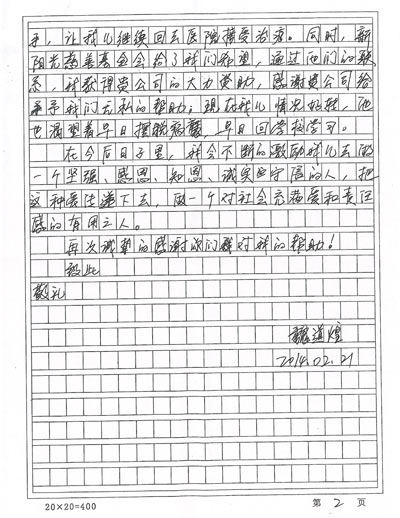 手，让我儿继续回去医院接受治疗。同时，新
阳光慈善基金会给了我们希望，通过他们的联
系，我获得贵公司的大力资助，感谢贵公司给
予我们无私的帮助；现在我儿情况好转，他
也渴望着早日摆脱病魔，早日回学校学习。
在今后日子里，我会不断的激励我儿去做
一个坚强、感恩、知恩、诚实守信的人，把
这种爱传递下去，做一个对社会充满爱和责任
感的有用之人。
再次诚挚的感谢你们对我的帮助！
致此
敬礼
魏道煌
2014.02.21
20×20=400
第 2 页